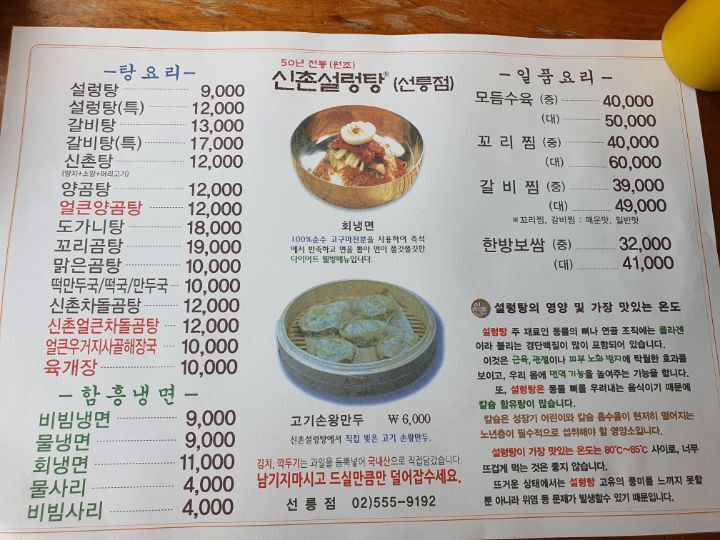 -탕요리-
설렁탕 9,000
설렁탕(특) 12,000
갈비탕 13,000
갈비탕(특) 17,000
신촌탕 12,000
(양지+소양+머리고기)
양곰탕 12,000
얼큰양곰탕 12,000
도가니탕 18,000
꼬리곰탕 19,000
맑은곰탕 10,000
떡만두국/떡국/만두국 10,000
신촌차돌곰탕 12,000
신촌얼큰차돌곰탕 12,000
얼큰우거지사골해장국 10,000
육개장 10,000
-함흥냉면-
비빔냉면 9,000
물냉면 9,000
회냉면 11,000
물사리 4,000
비빔사리 4,000
50년 전통(원조)
신촌설렁탕® (선릉점)
회냉면
100%순수 고구마전분을 사용하여 즉석
에서 반죽하고 면을 뽑아 면이 쫄깃쫄깃한
다이어트 웰빙메뉴입니다.
고기손왕만두 ₩ 6,000
신촌설렁탕에서 직접 빚은 고기 손왕만두.
김치, 깍두기는 과일을 듬뿍넣어 국내산으로 직접담갔습니다
남기지마시고 드실만큼만 덜어잡수세요.
선릉점 02)555-9192
-일품요리-
모듬수육 (중) 40,000
(대) 50,000
꼬리찜 (중) 40,000
(대) 60,000
갈비찜 (중) 39,000
(대) 49,000
※꼬리찜, 갈비찜 : 매운맛, 일반맛
한방보쌈 (중) 32,000
(대) 41,000
신촌 설렁탕의 영양 및 가장 맛있는 온도
설렁탕 주 재료인 동물의 뼈나 연골 조직에는 콜라겐
이라 불리는 경단백질이 많이 포함되어 있습니다.
이것은 근육,관절이나 피부 노화 방지에 탁월한 효과를
보이고, 우리 몸에 면역 기능을 높여주는 기능을 합니다.
또, 설렁탕은 동물 뼈를 우려내는 음식이기 때문에
칼슘 함유량이 많습니다.
칼슘은 성장기 어린이와 칼슘 흡수율이 현저히 떨어지는
노년층이 필수적으로 섭취해야 할 영양소입니다.
설렁탕이 가장 맛있는 온도는 80℃~85℃ 사이로, 너무
뜨겁게 먹는 것은 좋지 않습니다.
뜨거운 상태에서는 설렁탕 고유의 풍미를 느끼지 못할
뿐 아니라 위염 등 문제가 발생할수 있기 때문입니다.